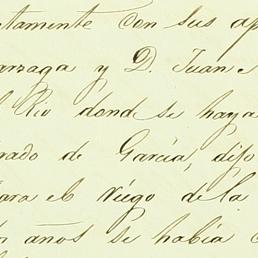 tamente con sus ap
arzaga y D. Juan
Rio donde se haya
rado de García, dijo
ara el Riego de la
años se había